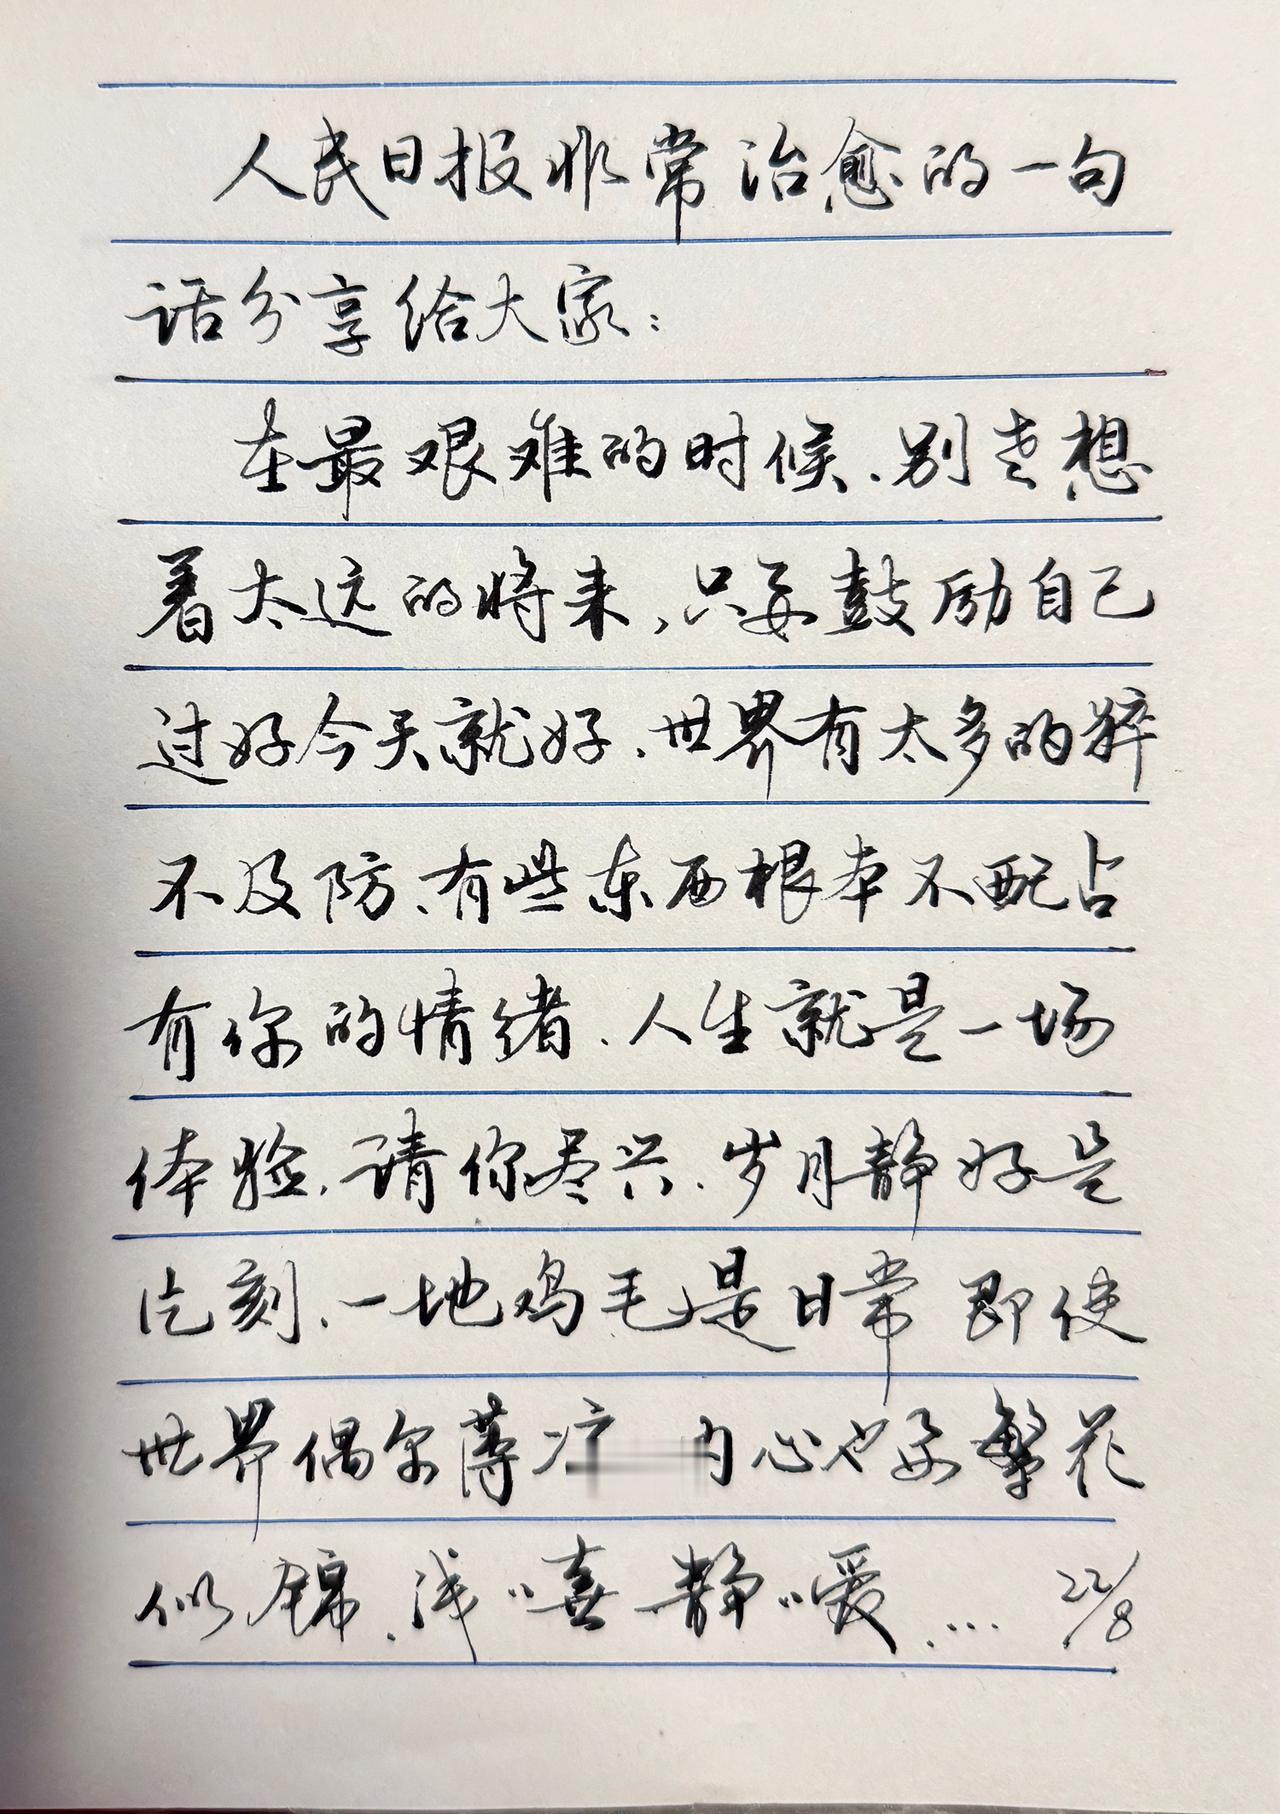 人民日报非常治愈的一句
话分享给大家：
在最艰难的时候、别老想
着太远的将来，只要鼓励自己
过好今天就好、世界有太多的猝
不及防、有些东西根本不配占
有你的情绪、人生就是一场
体验、请你尽兴、岁月静好是
片刻、一地鸡毛是日常 即使
世界偶尔薄凉 内心也要繁花
似锦、浅、喜静、爱、.... 22/8